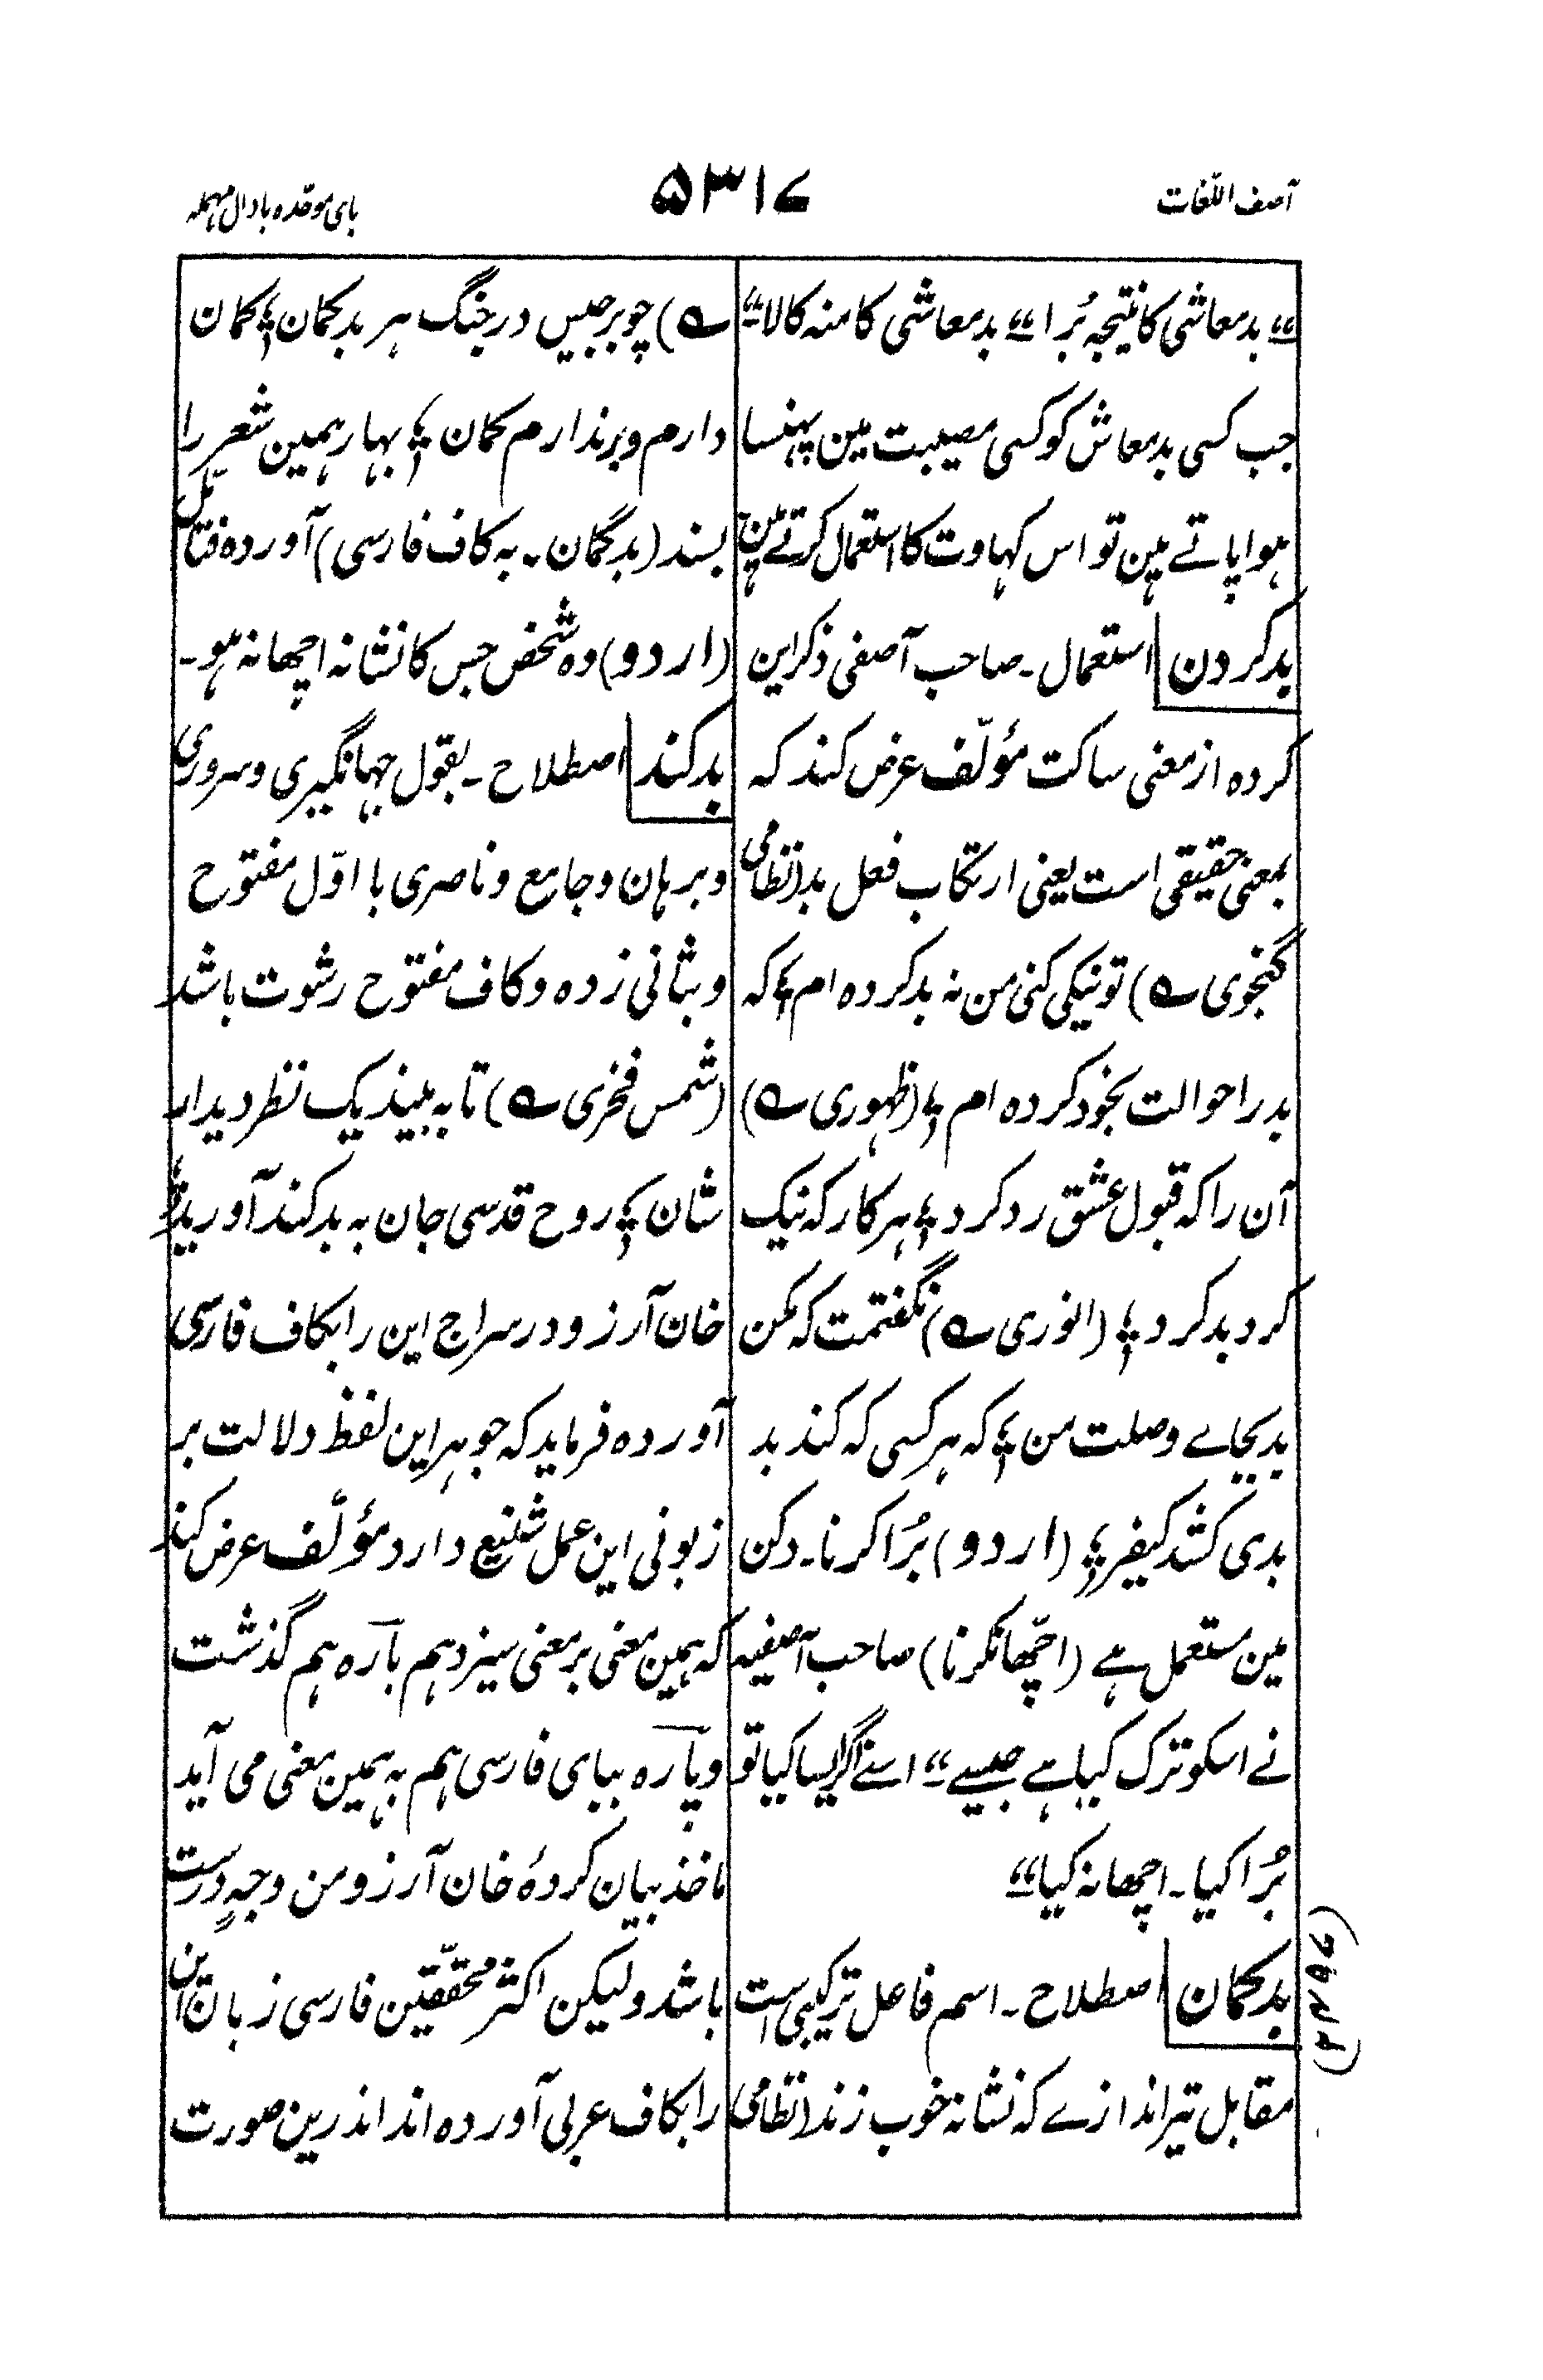 آصف اللّغات
۵۳۱۷
بای موحّده با دال مہملہ
‘‘ بدمعاشی کا نتیجہ بُرا ’’ بدمعاشی کا منہ کالا ’’
جب کسی بدمعاش کو کسی مصیبت مین پہنسا
ہوا پاتے ہین تو اس کہاوت کا استعمال کرتے ہین
بدکردن استعمال۔ صاحب آصفی ذکر این
کردہ از معنی ساکت مؤلّف عرض کند کہ
بمعنی حقیقی است یعنی ارتکاب فعل بد (نظامی
گنجوی ؎) تو نیکی کنی من نہ بد کردہ ام ؛ کہ
بد را حوالت بخود کردہ ام ؛ (ظہوری ؎)
آن را کہ قبول عشق رد کرد ؛ ہر کار کہ نیک
کرد بد کرد ؛ (انوری ؎) نگفتمت کہ مکن
بد بجاے وصلت من ؛ کہ ہر کسی کہ کند بد
بدی کشد کیفر ؛ (اردو) بُرا کرنا۔ دکن
مین مستعمل ہے (اچّھا نکرنا) صاحب آصفیہ
نے اسکو ترک کیا ہے جیسے ‘‘ اسنے اگر ایسا کیا تو
بُرا کیا۔ اچھا نہ کیا ’’
بدکمان اصطلاح۔ اسم فاعل ترکیبی است
مقابل تیراندازے کہ نشانہ خوب زند (نظامی
؎) چو برجیس در جنگ ہر بدکمان ؛ کمان
دارم و برندارم کمان ؛ بہار ہمین شعر را
بسند (بدگمان۔ بہ کاف فارسی) آوردہ فتأمّل
(اردو) وہ شخص جس کا نشانہ اچھا نہ ہو۔
بدکند اصطلاح۔ بقول جہانگیری و سروری
و برہان و جامع و ناصری با اوّل مفتوح
و بثانی زدہ و کاف مفتوح رشوت باشد
(شمس فخری ؎) تا بہ بیند یک نظر دیدار
شان ؛ روح قدسی جان بہ بدکند آورید ؛
خان آرزو در سراج این را بکاف فارسی
آوردہ فرماید کہ جوہر این لفظ دلالت بر
زبونی این عمل شنیع دارد مؤلّف عرض کند
کہ ہمین معنی بر معنی سیزدہم بارہ ہم گذشت
و پارہ ببای فارسی ہم بہ ہمین معنی می آید
ماخذ بیان کردۂ خان آرزو من وجہٍ درست
باشد ولیکن اکثر محقّقین فارسی زبان این
را بکاف عربی آوردہ اند اندرین صورت